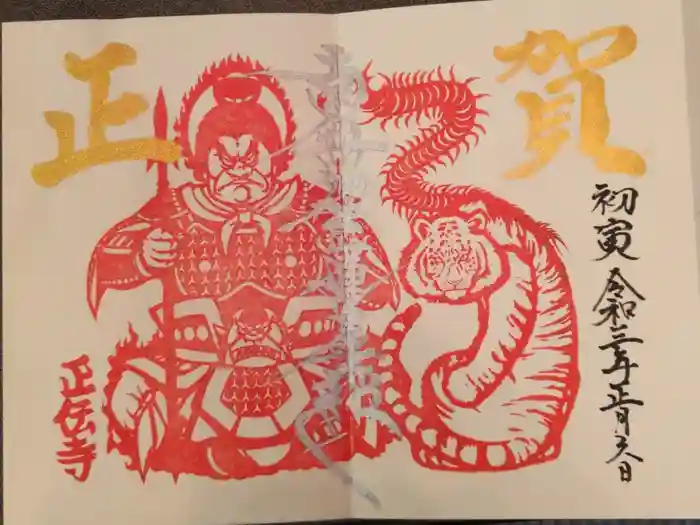 賀
正
初寅 令和三年正月六日
正伝寺